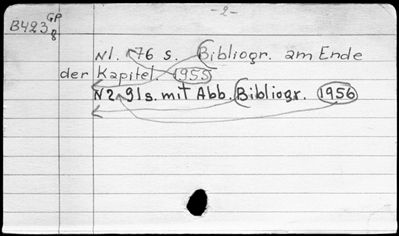 GP
- 2 -
B423
8
N1. 76 s. Bibliogr. am Ende
der Kapitel. 1955
N2. 91s. mit Abb. Bibliogr. 1956